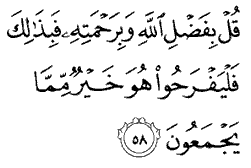 قُلۡ بِفَضۡلِ ٱللَّهِ وَبِرَحۡمَتِهِۦ فَبِذَٰلِكَ
فَلۡيَفۡرَحُواْ هُوَ خَيۡرٞ مِّمَّا
يَجۡمَعُونَ ٥٨